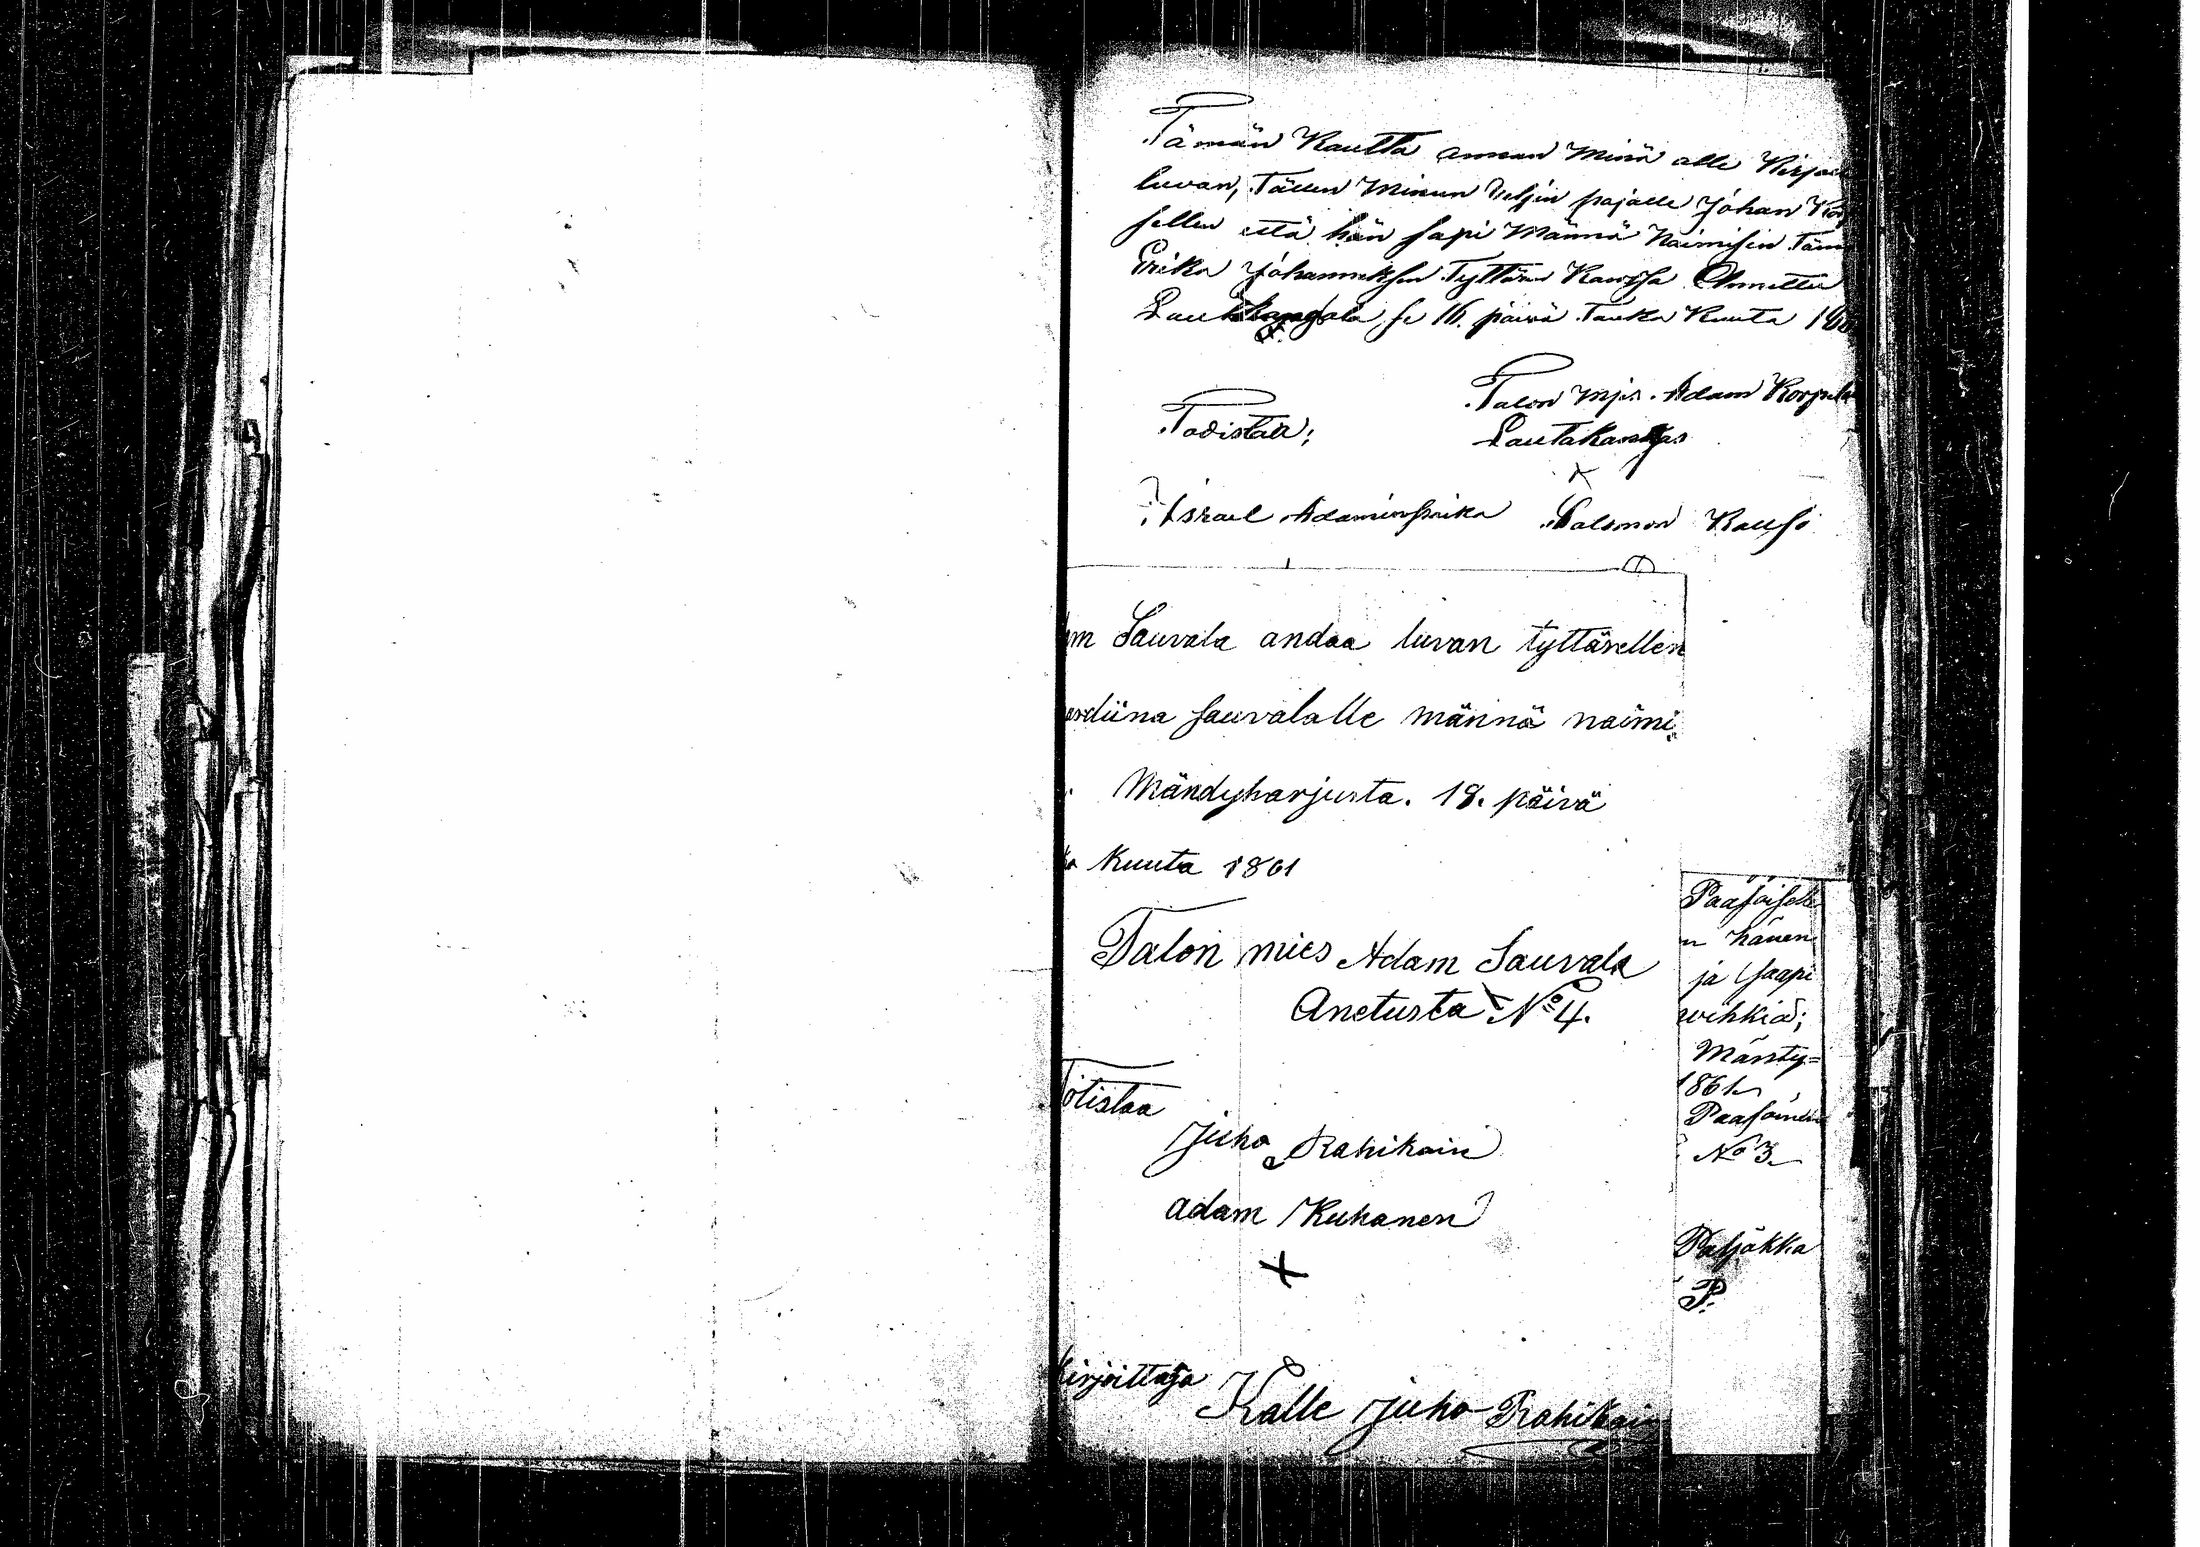 Tämän Kautta annan Minä alle Kirjoi
luvan, Tällen Minun Veljin pojalle Johan Kor
sellen että hän sapi Männä Naimisin Täm
Erika Johanneksen Tyttären Kanssa Annettu
se 16. päivä Touko Kuuta 18
Talon Mjs. Adam Korpela
Todistaa; Lautakangas
Israel Adaminpoika Salomon Kauso
m Sauvala andaa luvan tyttärellen
rdiina sauvalalle männä naimi
Mändyharjusta. 18. päivä
Kuuta 1861
Talon mies Adam Sauvala
Anetusta No 4.
Totistaa
Juho Rahikain
adam Kuhanen
X
Kirjoittaja
Kalle Juho Rahikai
Paasoiselle
n hänen
ja saapi
wihkiä;
Mänty=
1861
Paasoinen
No 3
Paljakka
P.